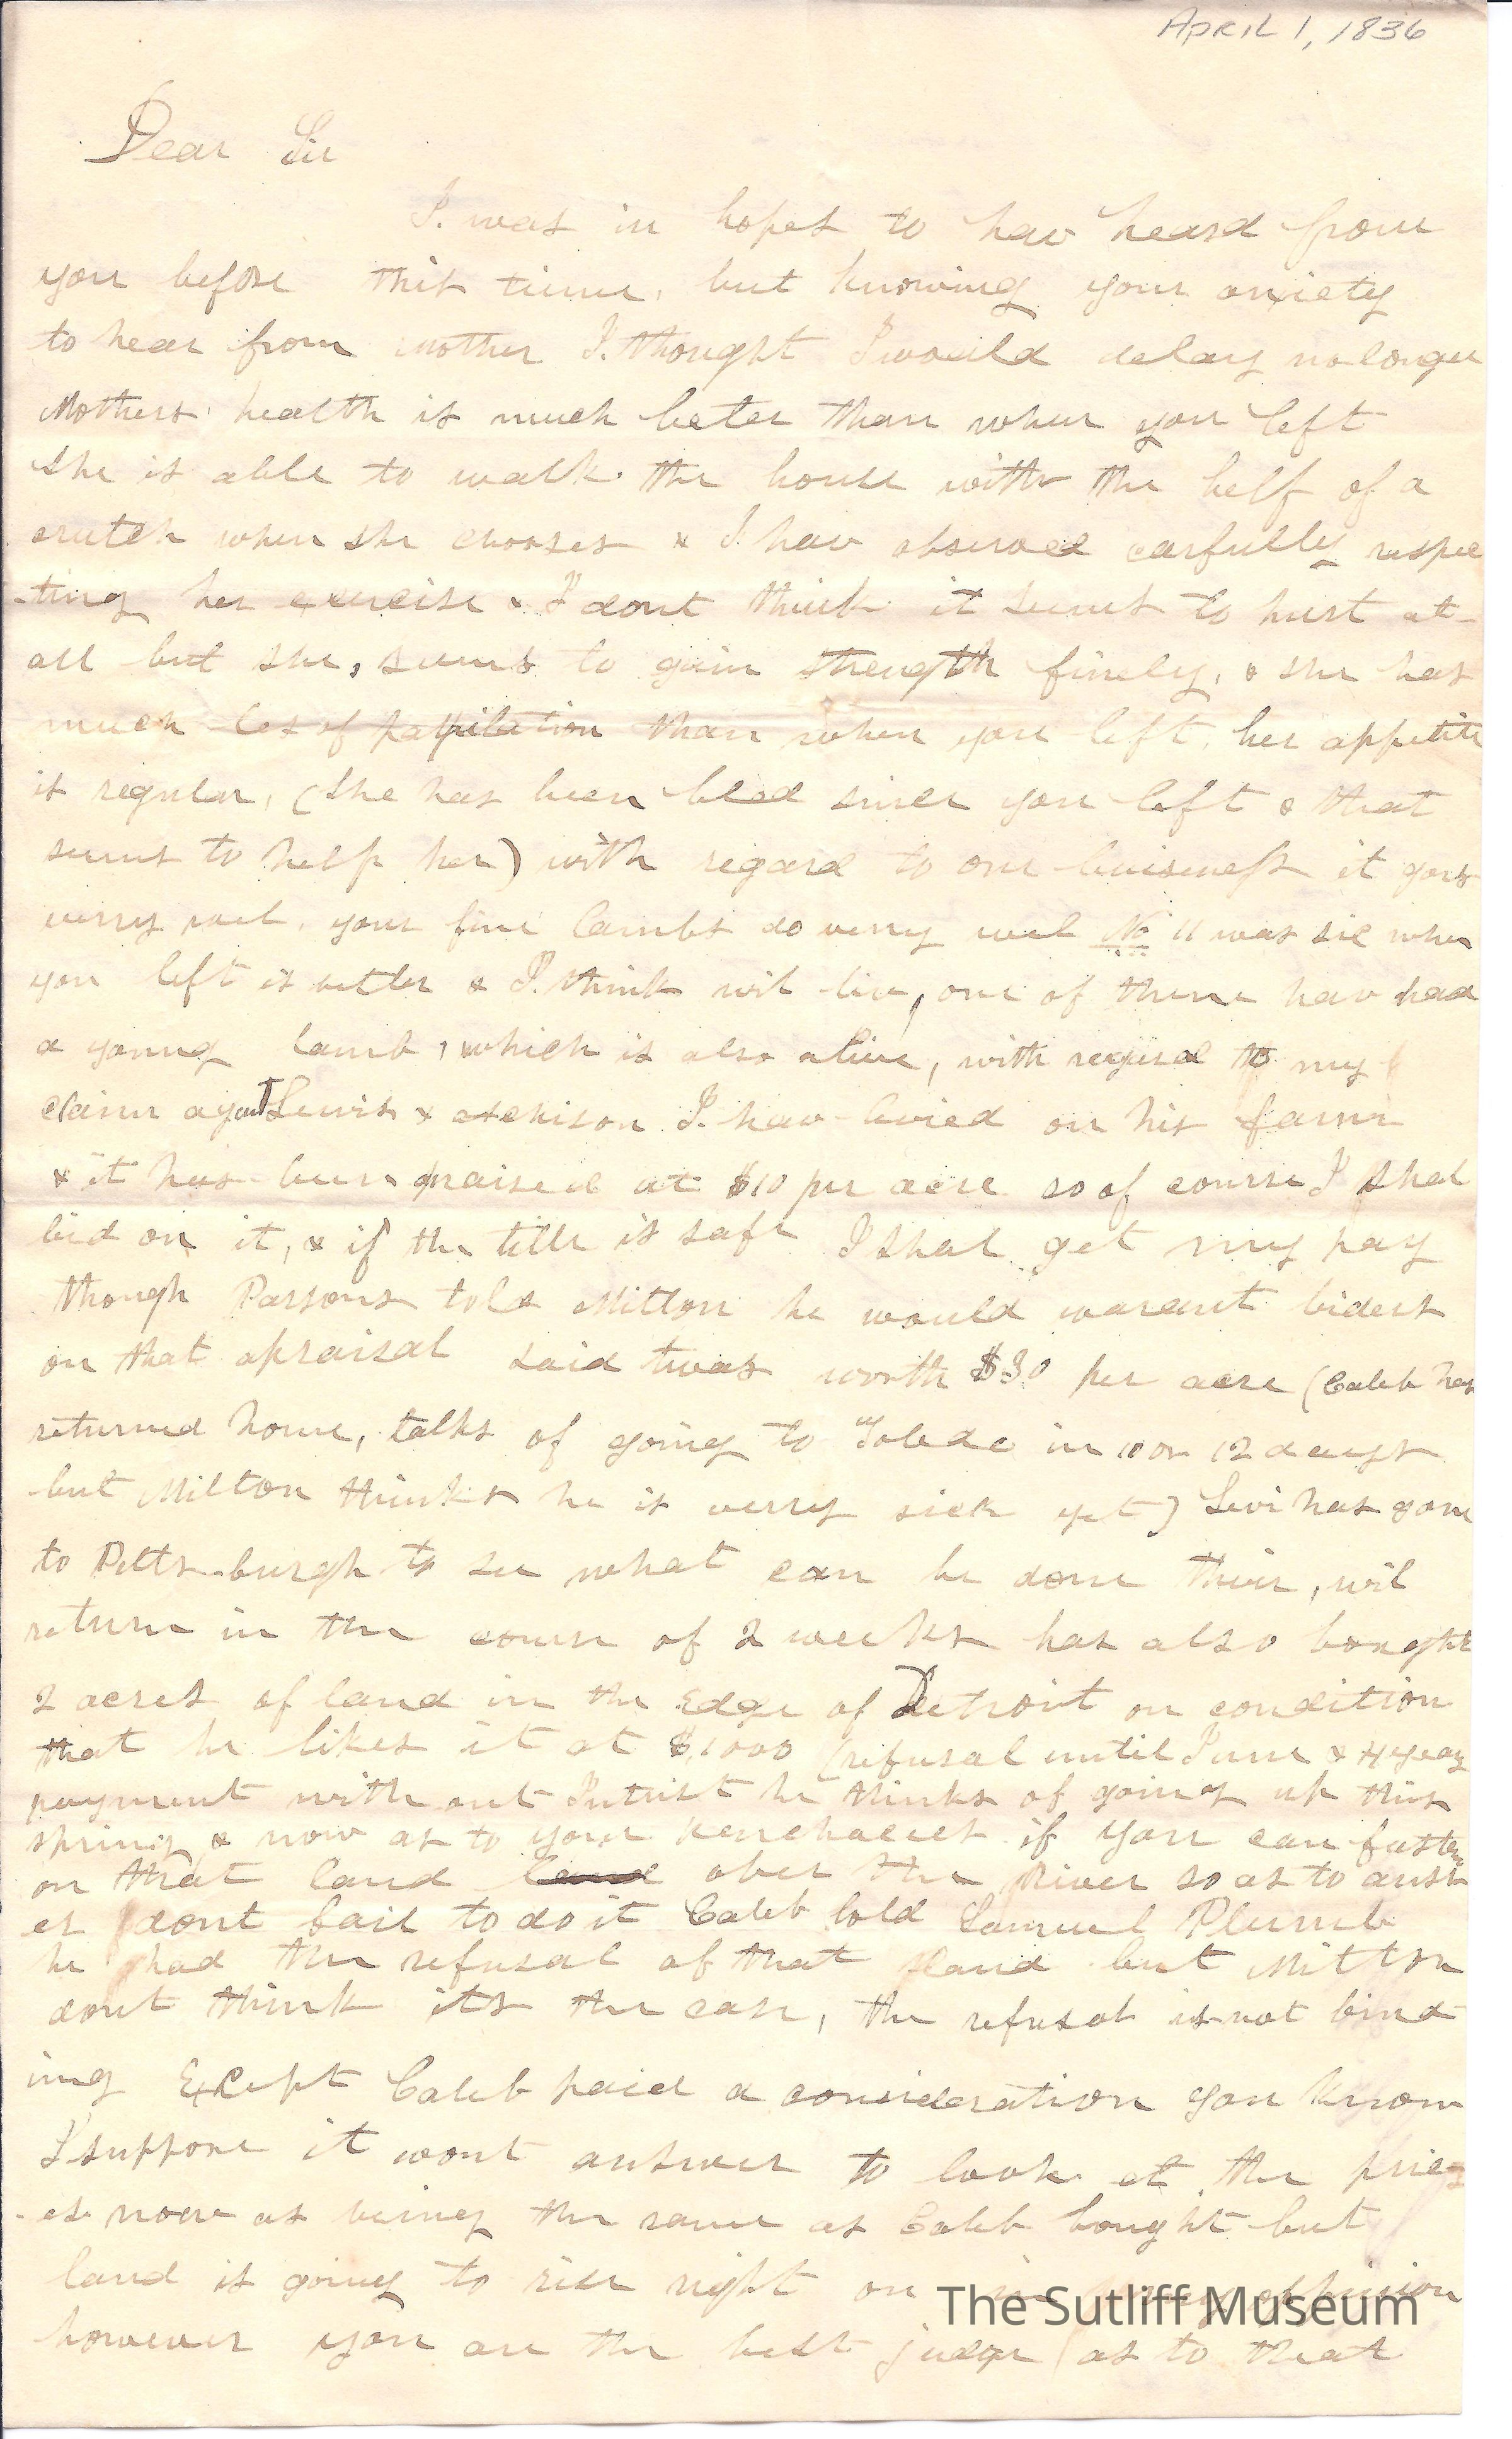 APRIL 1, 1836
Dear Sir
I. was in hopes to hav heard from
you before this time, but knowing your anxiety
to hear from mother I. thought I would delay no longer
Mothers health is much beter than when you left
She is able to walk the house with the help of a
crutch when she chooses & I. hav observed carfully respec
-ting her exercise & I dont think it seems to hurt at-
all but she, seems to gain strength finely, & she has
much les of palpitation than when you left, her appetite
is regular, (She has been bled since you left & that
seems to help her) with regard to our buisness it goes
verry wel. your fine lambs do verry wel No 11 was sic when
you left is better & I. think wil liv, one of them hav had
a young lamb, which is also alive, with regard to my
claim aganst Lewis & atchison I. hav levied on his farm
& it has been praised at $10 per acre so of course I shal
bid on it, & if the title is safe I shal get my pay
though Parsons told Milton he would warant biders
on that apraisal said twas worth $30 per acre (Caleb has
returned home, talks of going to Toledo in 10 or 12 days
but Milton thinks he is verry sick yet) Levi has gone
to Pittsburgh to see what can be done their, wil
return in the course of 2 weeks has also bought
2 acres of land in the Edge of Detroit on condition
that he likes it at $1000 (refusal until June & 4 years
payment with out Intrist he thinks of going up this
spring, & now as to your if you can fasten
on that land land over the River so as to answ
er dont fail to do it Caleb told Samuel Plumb
he had the refusal of that land but Milton
dont think its the case, the refusal is not bind
ing Except Caleb paid a consideration you know
I suppose it wont answer to look at the pric-
-es now as being the same as Caleb bought but
land is going to rise right on in my oppinion
however you are the best judge as to that
The Sutliff Museum